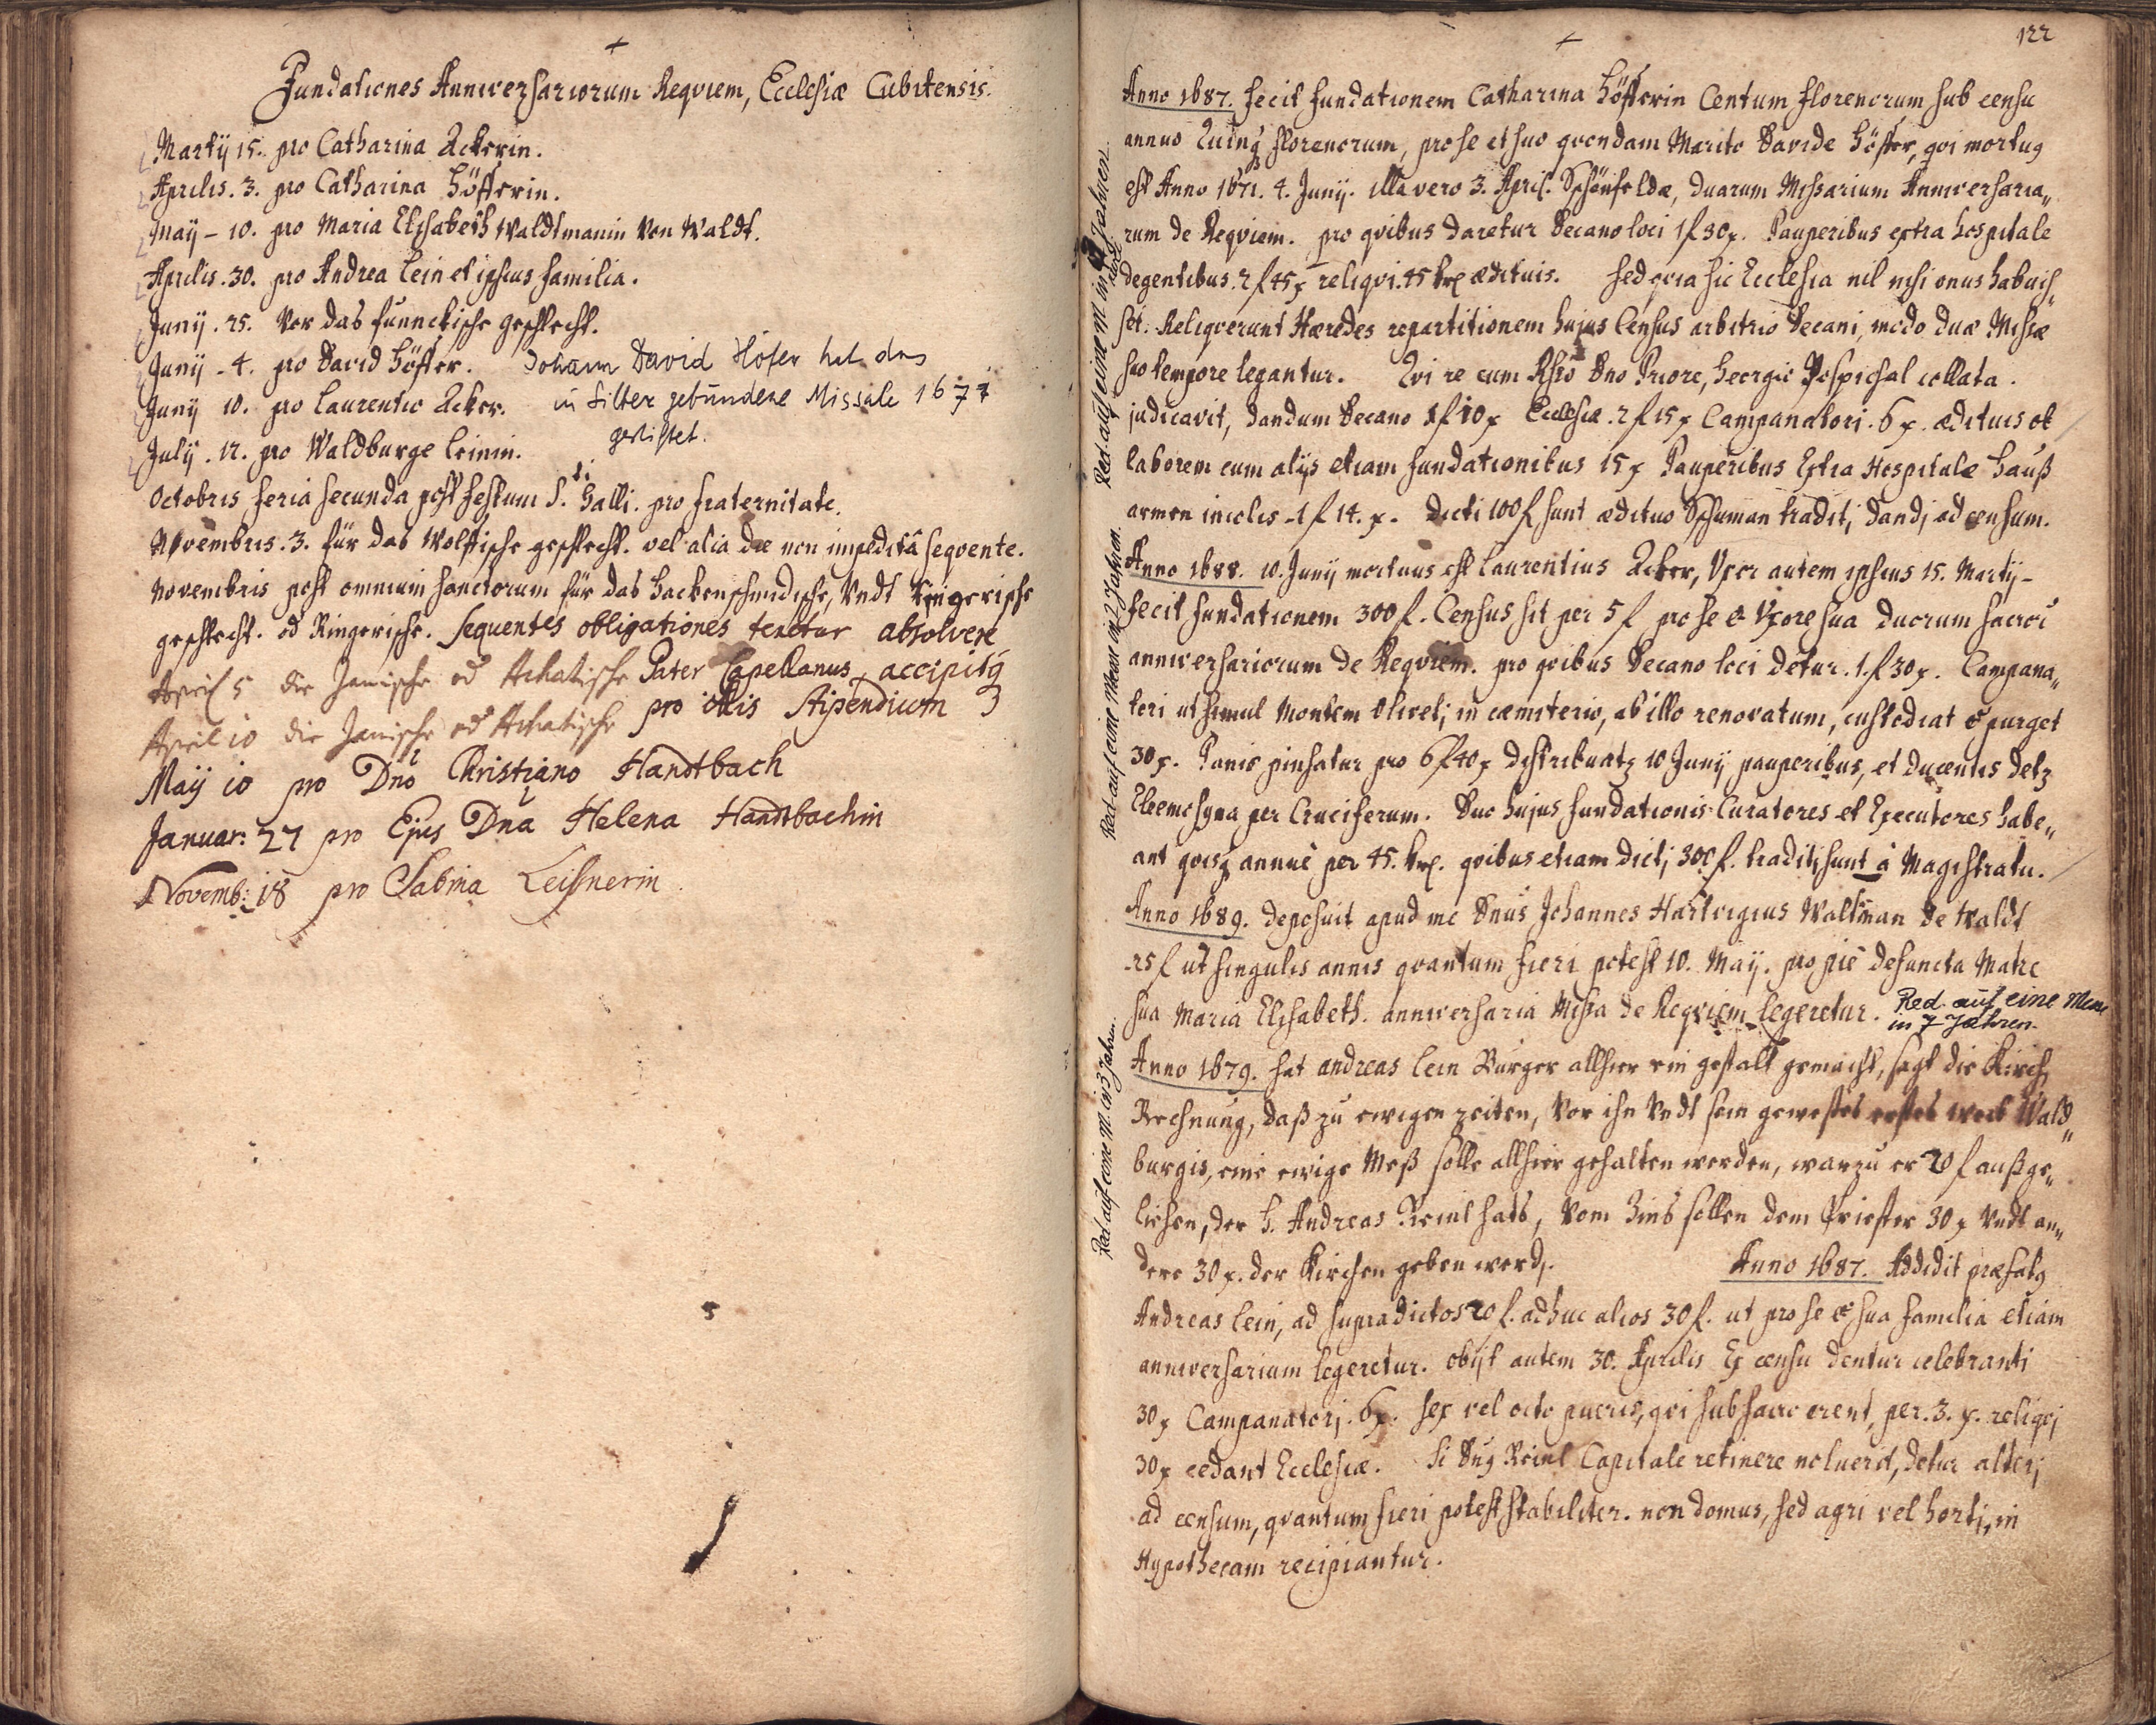 Fundationes Anniversariorum Requiem, Ecclesiæ Cubitensis.
Martij 15. pro Catharina Ackerin.
Aprilis. 3. pro Catharina Höfferin.
Maij - 10. pro Maria Elisabeth Waldtmanin Von Waldt.
Aprilis. 30. pro Andrea Lein et ipsius familia.
Junij. 25. Vor das funnckische geschlecht.
Junij - 4. pro David Höffer. Johann David Höfer hat das
Junij 10. pro Laurentio Acker. in Silber gebundene Missale 1677
gestiftet.
Julij. 12. pro Waldburge Leinin.
Octobris feria secunda post festum S. Galli. pro fraternitate.
Novembris. 3. für das Wolffische geschlecht. vel alia die non impedita seqvente.
Novembris post omnium sanctorum für das Hackenschmidische, Vndt Ringerische
geschlecht. od Ringerische. Sequentes obligationes tenetur absolvere
April 5 die Janische od Achatische Pater Capellanus, accipit
April 10 die Janische od Achatische pro illis Stipendium
Maij 10 pro Dno Christiano Handtbach
Januar: 27 pro Ejus Dna Helena Handtbachin
Novemb: 18 pro Sabina Leisnerin.
122
Anno 1687. fecit fundationem Catharina Höfferin Centum florenorum sub censu
annuo Quinq florenorum, pro se et suo qvondam Marito Davide Höffer, qvi mortuq
est Anno 1671. 4. Junij. illa vero 3. April. Schönfeldæ, duarum Missarium Anniversaria„
rum de Reqviem. pro qvibus daretur Decano loci 1 f 30 x. Pauperibus extra hospitale
degentibus. 2 f 45 x reliqvi. 45 krx ædituis. Sed qvia hic Ecclesia nil nisi onus habuis„
set. Reliqverunt Hæredes repartitionem hujus Census arbitrio Decani, modo duæ Missæ
suo tempore legantur. Qvi re cum Rsso Dno Priore, Georgio Pospichal collata.
judicavit, dandum Decano 1 f 10 x Ecclesiæ. 2 f 15 x Campanatori. 6 x. ædituis ob
laborem cum alijs etiam fundationibus 15 x Pauperibus Extra Hospitale Hauß
armen incolis - 1 f 14. x. Dicti 100 f sunt ædituo Schuman tradit, dandj ad censum.
Anno 1688. 10. Junij mortuus est Laurentius Acker, Vxor autem ipsius 15. Martij -
fecit fundationem 300 f. Census sit per 5 f pro se & Vxore sua duorum sacro
anniversariorum de Reqviem. pro qvibus Decano loci detur. 1. f 30 x. Campana„
tori ut simul Montem Olivetj in cæmiterio, ab illo renovatum, custodiat & purget
30 x. Panis pinsatur pro 6 f 40 x distribuatz 10 Junij pauperibus, et ducentis detz
Eleemosyna per Cruciferum. Duo hujus fundationis Curatores et Executores habe„
ant qvisq annuè per 45. krx. qvibus etiam dictj 300 f. traditj sunt à Magistratu.
Anno 1689. deposuit apud me Dnus Johannes Hartvigius Waltman de Waldt
25 f ut singulis annis qvantum fieri potest 10. Maij. pro piè defuncta Matre
sua Maria Elisabeth. anniversaria Missa de Reqviem legeretur. Red. auf eine Messe
in 7 Jahren.
Anno 1679. hat andreas Lein Bürger allhier ein gestalt gemacht, sagt die Kirch
Rechnung, daß zu ewigen zeiten, Vor ihn Vndt sein gewestes erstes weib Wald„
burgis, eine ewige Meß solle allhier gehalten werden, warzu er 20 f außge„
liehen, der H. Andreas Reinl hats, Vom Zins sollen dem Priester 30 x Vndt an„
dere 30 x. der Kirchen geben werd.
Anno 1687. Addidit præfatq
Andreas Lein, ad supradictos 20 f. adhuc alios 30 f. ut pro se & sua familia etiam
anniversarium legeretur. obijt autem 30. Aprilis Ex censu dentur celebranti
30 x Campanatorj. 6 x. sex vel octo pueris, qvi sub sacro orent, per. 3. x. reliqvj
30 x cedant Ecclesiæ. Si Dnq Reinl Capitale retinere noluerit, detur alterj
ad censum, qvantum fieri potest stabiliter. non domus, sed agri vel hortj, in
Hypothecam recipiantur.
Red. auf eine M. in 3 Jahren.
Red. auf eine Mess in 2 Jahren.
Red. auf eine M in Jahren.